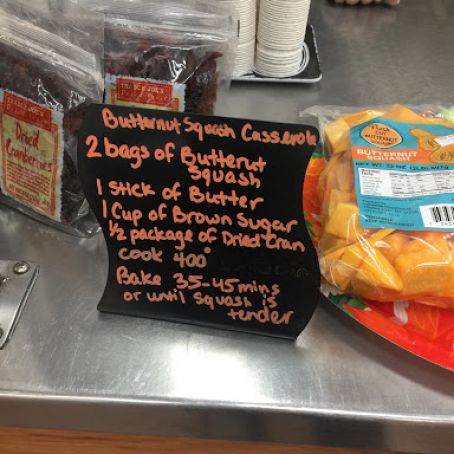 Butternut Squash Casserole
2 bags of Butterut
Squash
1 stick of Butter
1 Cup of Brown Sugar
1/2 package of Dried Cran
cook 400°
Bake 35-45 mins
or until squash is
tender
TRADER JOE'S
Dried
Cranberries
TRADER JOE'S
BUTTERNUT
BUTTERNUT
SQUASH